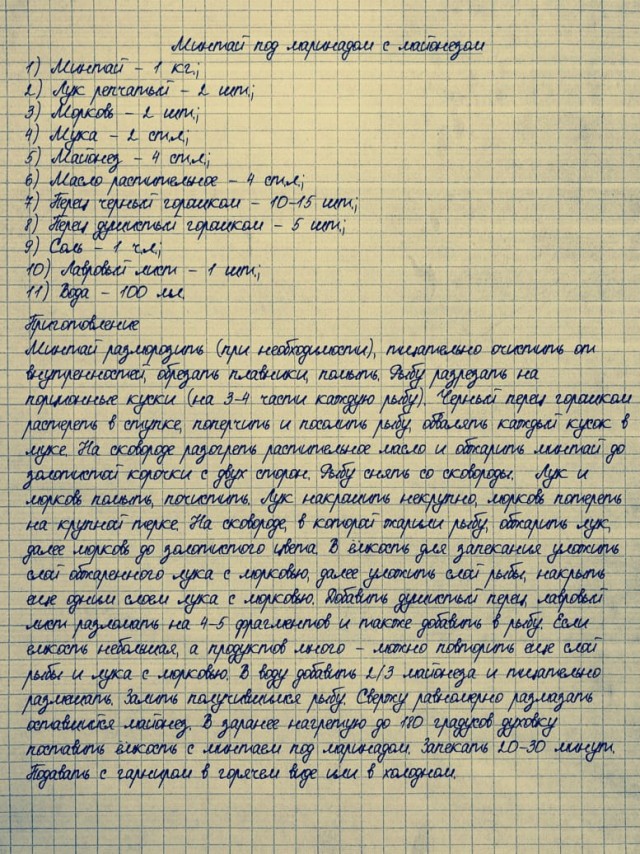 Минтай под маринадом с майонезом
1) Минтай – 1 кг.;
2) Лук репчатый – 2 шт.;
3) Морковь – 2 шт.;
4) Мука – 2 ст.л.;
5) Майонез – 4 ст.л.;
6) Масло растительное – 4 ст.л.;
7) Перец черный горошком – 10-15 шт.;
8) Перец душистый горошком – 5 шт.;
9) Соль – 1 ч.л.;
10) Лавровый лист – 1 шт.;
11) Вода – 100 мл.
Приготовление
Минтай разморозить (при необходимости), тщательно очистить от
внутренностей, обрезать плавники, помыть. Рыбу разрезать на
порционные куски (на 3-4 части каждую рыбу). Черный перец горошком
растереть в ступке, поперчить и посолить рыбу, обвалять каждый кусок в
муке. На сковороде разогреть растительное масло и обжарить минтай до
золотистой корочки с двух сторон. Рыбу снять со сковороды. Лук и
морковь помыть, почистить. Лук накрошить некрупно, морковь потереть
на крупной терке. На сковороде, в которой жарили рыбу, обжарить лук,
далее морковь до золотистого цвета. В ёмкость для запекания уложить
слой обжаренного лука с морковью, далее уложить слой рыбы, накрыть
еще одним слоем лука с морковью. Добавить душистый перец, лавровый
лист разломать на 4-5 фрагментов и также добавить в рыбу. Если
емкость небольшая, а продуктов много – можно повторить еще слой
рыбы и лука с морковью. В воду добавить 2/3 майонеза и тщательно
размешать. Залить получившимся рыбу. Сверху равномерно размазать
оставшийся майонез. В заранее нагретую до 180 градусов духовку
поставить ёмкость с минтаем под маринадом. Запекать 20-30 минут.
Подавать с гарниром в горячем виде или в холодном.